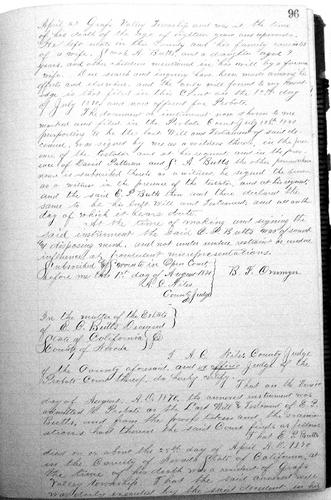 96
April at Grass Valley Township and was at the time
of his death of the age of eighteen years and upwards.
He left estate in this County and his family consists
of a wife, Sarah A. Butts and a daughter aged 9
years, and other children mentioned in his will by a former
wife. Due search and inquiry have been made among his
effects and elsewhere, and the only will found to my knowl-
edge is that filed in this Court on the 12th day
of July 1870 and now offered for Probate.
The document or instrument now shown to me
marked as filed in the Probate Court July 12th 1870
purporting to be the last Will and Testament of said de-
ceased, was signed by me as a witness thereto, in the presence
of the testator and at his request and in the pres-
ence of David Patterson and S A Butts the other person whose
name is subscribed thereto as a witness he signed the same
as a witness in the presence of the testator, and at his request,
and the said E. P. Butts then and there declared the
same to be his last Will and Testament and all on the
day of which it bears date.
At the time of making and signing the
said instrument the said E. P. Butts was of sound
and disposing mind, and not under undue restraint or undue
influence or fraudulent misrepresentations.
Subscribed & sworn to in Open Court
before me this 1st day of August 1870
A. C. Niles
County Judge
In the matter of the Estate
of E. P. Butts Deceased
State of California
County of Nevada
I A. C. Niles County Judge
of the County aforesaid, and ex officio Judge of the
Probate Court thereof, do hereby certify: That on the first
day of August, A.D. 1870, the annexed instrument was
admitted to Probate as the Last Will & Testament of E. P.
Butts, and from the proofs taken and the examin-
ations had therein the said Court finds as follows:
That E. P. Butts
died on or about the 28th day of April A.D. 1870
in the County of Nevada State of California, at
the time of his death was a resident of Grass
Valley township. That the said annexed will
was duly executed by the said decedent in his